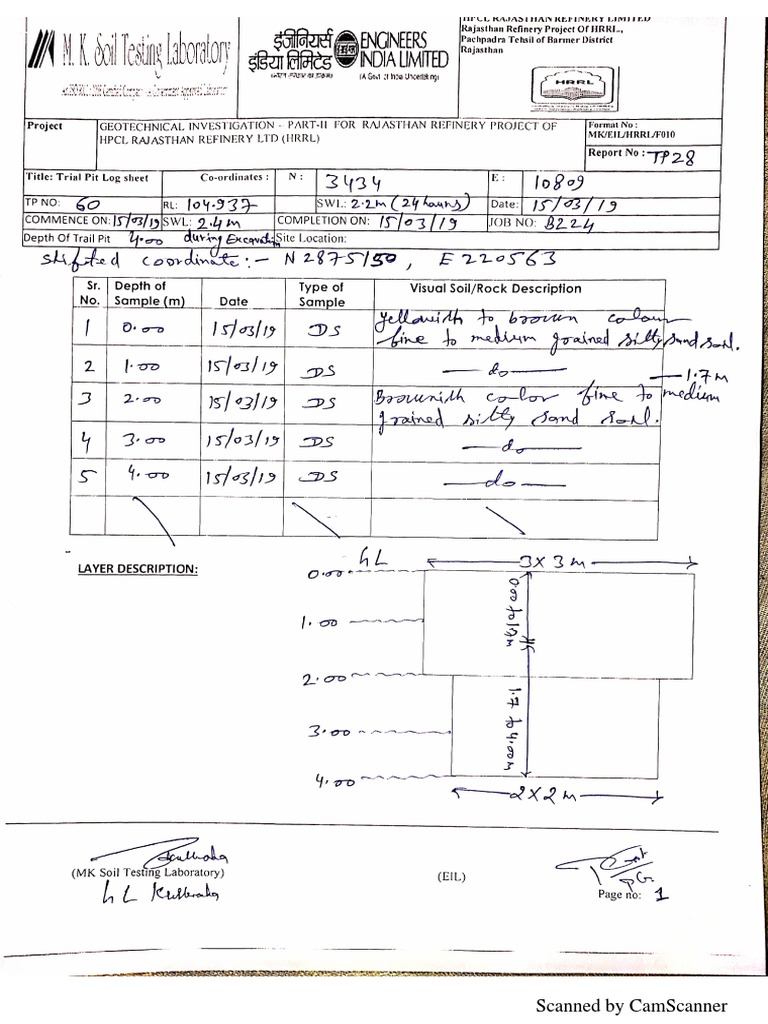 M. K. Soil Testing Laboratory
इंजीनियर्स
इंडिया लिमिटेड
ENGINEERS
INDIA LIMITED
(A Govt of India Undertaking)
HPCL RAJASTHAN REFINERY LIMITED
Rajasthan Refinery Project Of HRRL.,
Pachpadra Tehsil of Barmer District
Rajasthan
HRRL
Project
GEOTECHNICAL INVESTIGATION - PART-II FOR RAJASTHAN REFINERY PROJECT OF
HPCL RAJASTHAN REFINERY LTD (HRRL)
Format No :
MK/EIL/HRRL/F010
Report No : TP28
Title: Trial Pit Log sheet Co-ordinates : N : 3434 E : 10809
TP NO: 60 RL: 104.937 SWL: 2.2m (24 hours) Date: 15/03/19
COMMENCE ON: 15/03/19 SWL: 2.4m COMPLETION ON: 15/03/19 JOB NO: B224
Depth Of Trail Pit 4.00 during Excavation Site Location:
Shifted coordinate:- N 2875150, E 220563
Sr. No. Depth of Sample (m) Date Type of Sample Visual Soil/Rock Description
1 0.00 15/03/19 DS Yellowish to brown colour
fine to medium grained silty sand soil.
2 1.00 15/03/19 DS — do — — 1.7m
3 2.00 15/03/19 DS Brownish color fine to medium
grained silty sand soil.
4 3.00 15/03/19 DS — do —
5 4.00 15/03/19 DS — do —
LAYER DESCRIPTION:
GL
3 X 3 m
0.00
1.00
2.00
3.00
4.00
0.00 to 1.7m
1.7 to 4.00m
2 X 2 m
(MK Soil Testing Laboratory)
(EIL)
Page no: 1
Scanned by CamScanner